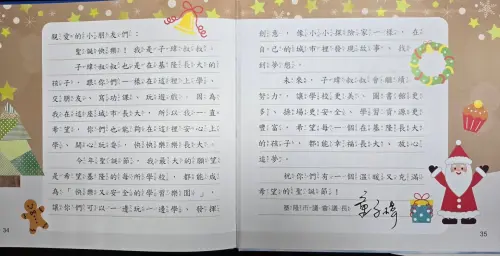 親愛的小朋友們：
聖誕快樂！我是子瑋叔叔。
子瑋叔叔也是在基隆長大的
孩子，跟你們一樣在這裡上學、
交朋友、寫功課、玩遊戲。因為
我在這座城市長大，所以我一直
希望，你們也能夠在這裡安心上
學、開心玩耍、快快樂樂長大。
今年聖誕節，我最大的願望
是希望基隆的每所學校，都能成
為「快樂又安全的學習樂園」，
讓你們可以一邊玩一邊學，發揮
創意，像小小探險家一樣，在
自己的城市裡發現故事、找
到夢想。
未來，子瑋叔叔會繼續
努力，讓學校更美、圖書館更
多、操場更安全、學習資源更
豐富，希望每一個在基隆長大
的孩子，都能幸福長大、放心
追夢。
祝你們有一個溫暖又充滿
希望的聖誕節！
基隆市議會議長 童子瑋
34
35